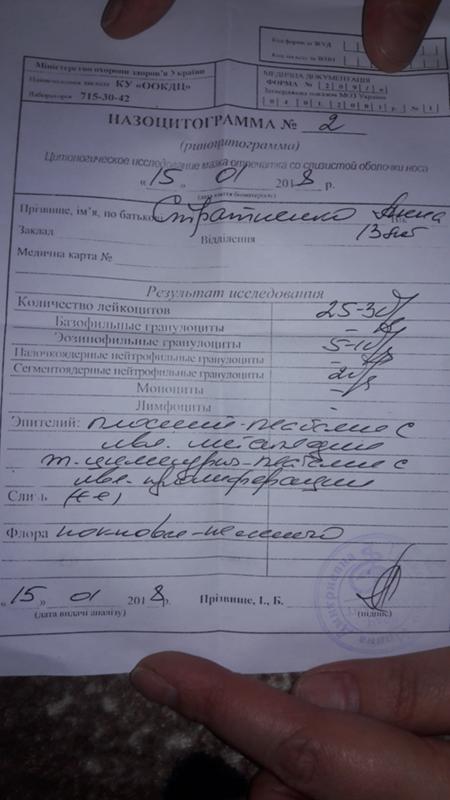 Код форми за ЗКУД
Код закладу за ЗКПО
Міністерство охорони здоров'я України
Найменування закладу КУ «ООКДЦ»
Лаборатория 715-30-42
МЕДИЧНА ДОКУМЕНТАЦІЯ
ФОРМА №
Затверджена наказом МОЗ України
04 01 2001 р. № 1
НАЗОЦИТОГРАММА № 2
(риноцитограмма)
Цитологическое исследование мазка отпечатка со слизистой оболочки носа
«15» 01 2018 р.
(дата взяття біоматеріалу)
Прізвище, ім'я, по батькові Стратиенко Анна
Вік
13 лет
Заклад Відділення
Медична карта №
Результат исследования
Количество лейкоцитов 25-30
Базофильные гранулоциты -
Эозинофильные гранулоциты 5-10
Палочкоядерные нейтрофильные гранулоциты -
Сегментоядерные нейтрофильные гранулоциты 20
Моноциты -
Лимфоциты -
Эпителий: плоский-пластами с
явл. метаплазии
пластами с
явл. пролиферации
Слизь (++)
Флора кокковая-немного
«15» 01 2018 р. Прізвище, І., Б.
(дата видачі аналізу) (підпис)